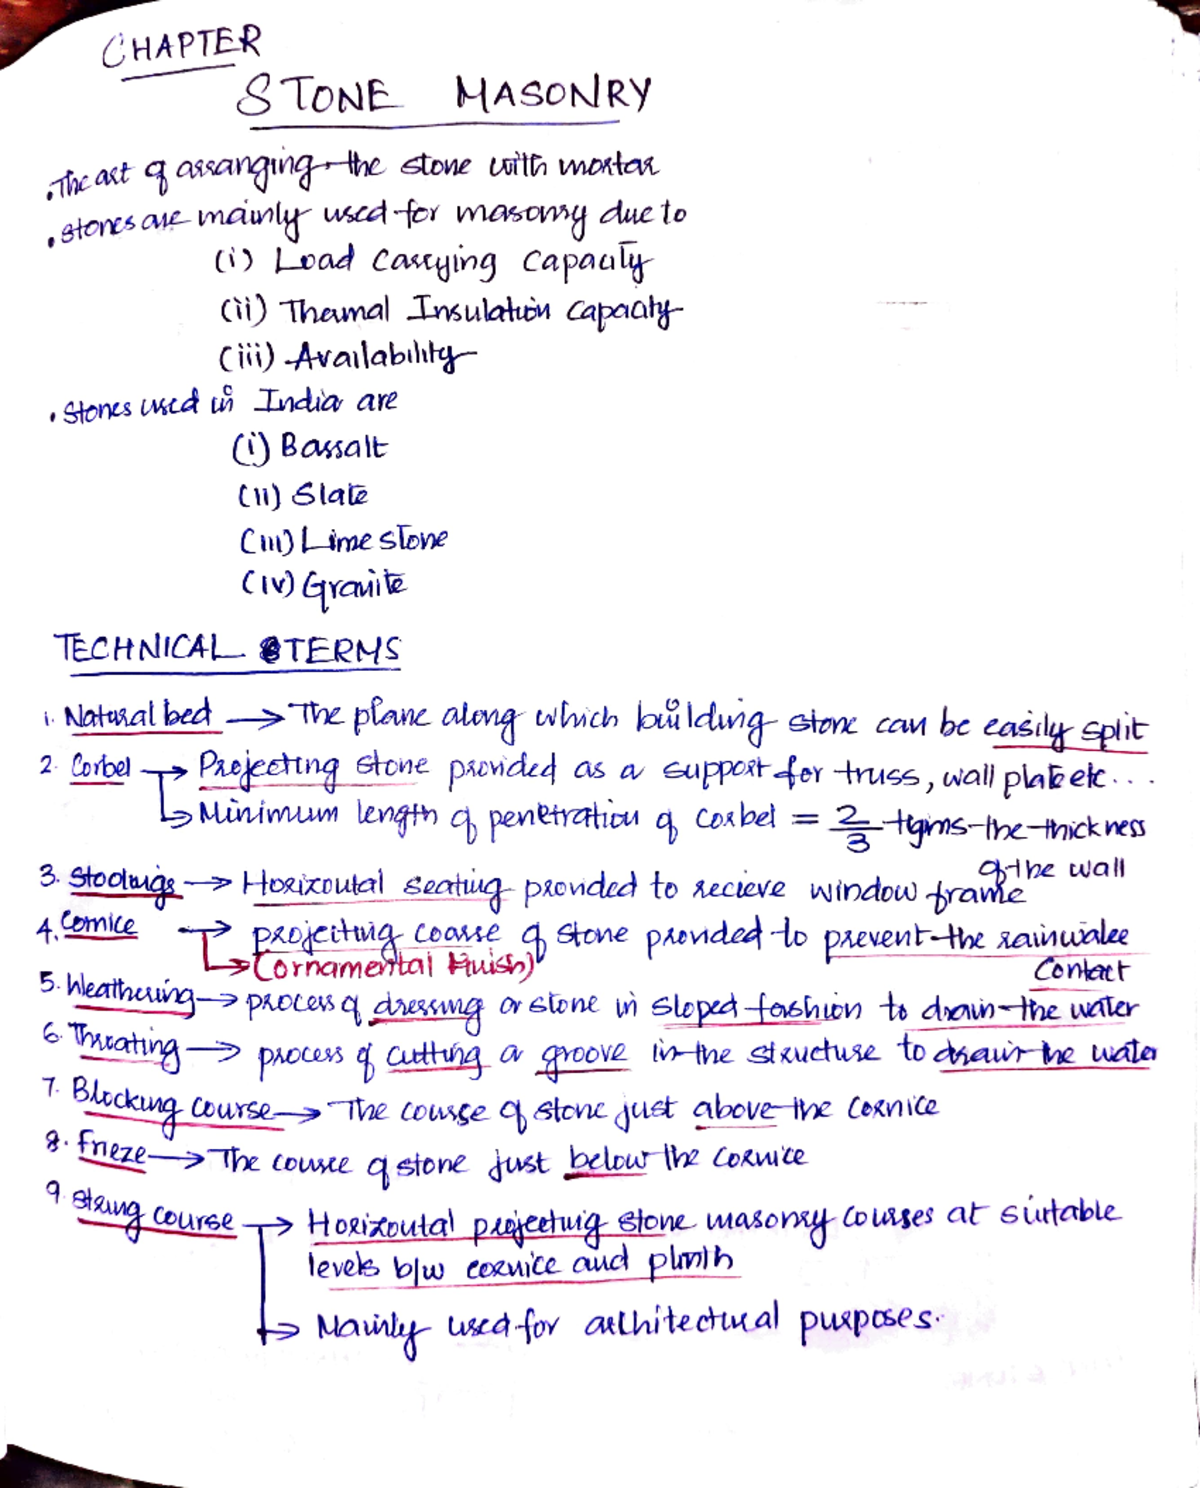 CHAPTER
STONE MASONRY
. The art of arranging the stone with mortar
. Stones are mainly used for masonry due to
(i) Load Carrying Capacity
(ii) Thermal Insulation Capacity
(iii) Availability
. Stones used in India are
(i) Bassalt
(ii) Slate
(iii) Lime stone
(iv) Granite
TECHNICAL TERMS
1. Natural bed → The plane along which building stone can be easily split
2. Corbel → Projecting stone provided as a support for truss, wall plate etc...
→ Minimum length of penetration of corbel = 2/3 the thickness
of the wall
3. Stoolings → Horizontal seating provided to recieve window frame
4. Cornice → projecting coarse of stone provided to prevent the
→ (ornamental Finish)
contact
5. Weathering → process of dressing or stone in sloped fashion to drain the water
6. Throating → process of cutting a groove in the structure to drain the water
7. Blocking course → The course of stone just above the cornice
8. Frieze → The course of stone just below the cornice
9. String course → Horizontal projecting stone masonry courses at suitable
levels b/w cornice and plinth
→ Mainly used for architectural purposes.